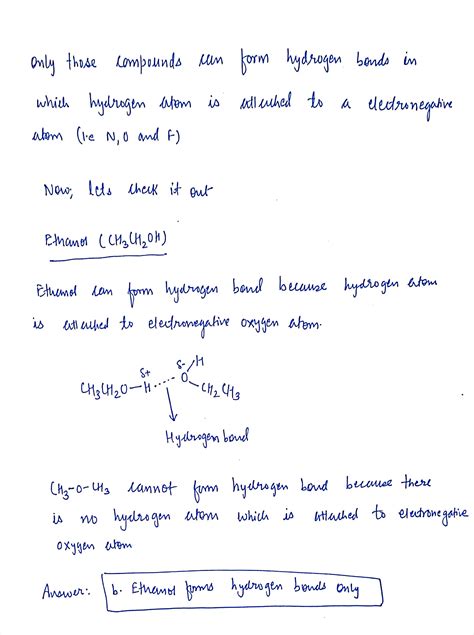 Only those compounds can form hydrogen bonds in
which hydrogen atom is attached to a electronegative
atom (i.e N, O and F)
Now, lets check it out
Ethanol (CH₃CH₂OH)
Ethanol can form hydrogen bond because hydrogen atom
is attached to electronegative oxygen atom.
CH₃CH₂O—H······O—H CH₂CH₃
δ+ δ-
Hydrogen bond
CH₃-O-CH₃ cannot form hydrogen bond because there
is no hydrogen atom which is attached to electronegative
oxygen atom
Answer: b. Ethanol forms hydrogen bonds only